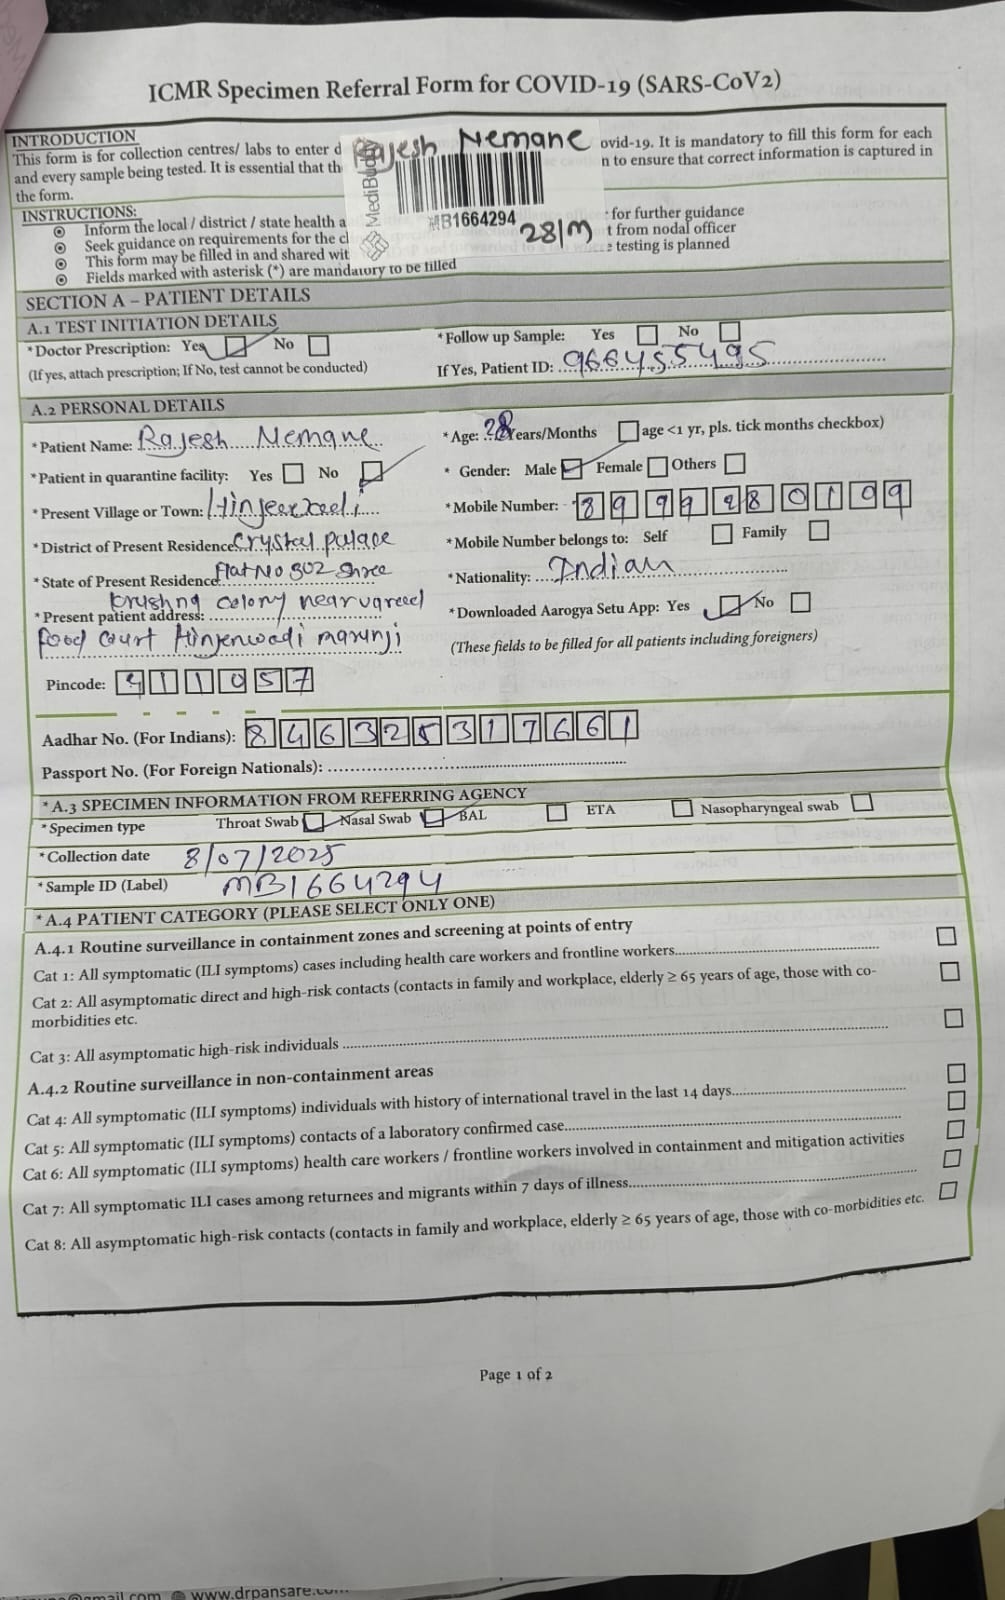 ICMR Specimen Referral Form for COVID-19 (SARS-CoV2)
INTRODUCTION
This form is for collection centres/ labs to enter d Rajesh Nemane ovid-19. It is mandatory to fill this form for each
and every sample being tested. It is essential that th n to ensure that correct information is captured in
the form.
MediBuddy
MB1664294
28/M
INSTRUCTIONS:
Inform the local / district / state health a for further guidance
Seek guidance on requirements for the cl t from nodal officer
This form may be filled in and shared wit e testing is planned
Fields marked with asterisk (*) are mandatory to be filled
SECTION A – PATIENT DETAILS
A.1 TEST INITIATION DETAILS
*Doctor Prescription: Yes No *Follow up Sample: Yes No
(If yes, attach prescription; If No, test cannot be conducted) If Yes, Patient ID: 9664555495
A.2 PERSONAL DETAILS
*Patient Name: Rajesh Nemane *Age: 28 Years/Months age <1 yr, pls. tick months checkbox)
*Patient in quarantine facility: Yes No * Gender: Male Female Others
*Present Village or Town: *Mobile Number: 8999280199
*District of Present Residence: Crystal palace *Mobile Number belongs to: Self Family
*State of Present Residence: Flat No 302 Shree *Nationality: Indian
*Present patient address: krushna colony near *Downloaded Aarogya Setu App: Yes No
food court Hinjenwadi marunji (These fields to be filled for all patients including foreigners)
Pincode: 411057
Aadhar No. (For Indians): 846325317661
Passport No. (For Foreign Nationals):
*A.3 SPECIMEN INFORMATION FROM REFERRING AGENCY
*Specimen type Throat Swab Nasal Swab BAL ETA Nasopharyngeal swab
*Collection date 8/07/2025
*Sample ID (Label) MB1664294
*A.4 PATIENT CATEGORY (PLEASE SELECT ONLY ONE)
A.4.1 Routine surveillance in containment zones and screening at points of entry
Cat 1: All symptomatic (ILI symptoms) cases including health care workers and frontline workers
Cat 2: All asymptomatic direct and high-risk contacts (contacts in family and workplace, elderly ≥ 65 years of age, those with co-
morbidities etc.
Cat 3: All asymptomatic high-risk individuals
A.4.2 Routine surveillance in non-containment areas
Cat 4: All symptomatic (ILI symptoms) individuals with history of international travel in the last 14 days
Cat 5: All symptomatic (ILI symptoms) contacts of a laboratory confirmed case
Cat 6: All symptomatic (ILI symptoms) health care workers / frontline workers involved in containment and mitigation activities
Cat 7: All symptomatic ILI cases among returnees and migrants within 7 days of illness
Cat 8: All asymptomatic high-risk contacts (contacts in family and workplace, elderly ≥ 65 years of age, those with co-morbidities etc.
Page 1 of 2
@gmail.com www.drpansare.